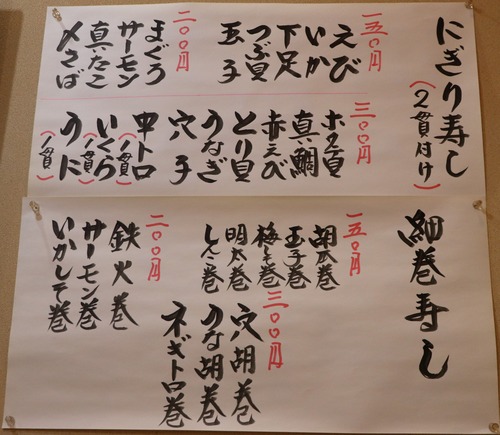 にぎり寿し
(2貫付け)
一五〇円
えび
いか
下足
つぶ貝
玉子
二〇〇円
まぐろ
サーモン
真だこ
〆さば
三〇〇円
ホタテ貝
真鯛
赤えび
とり貝
うなぎ
穴子
中トロ(1貫)
いくら(1貫)
うに(1貫)
細巻寿し
一五〇円
胡瓜巻
玉子巻
梅しそ巻
明太巻
しんこ巻
二〇〇円
鉄火巻
サーモン巻
いかしそ巻
三〇〇円
穴胡巻
うな胡巻
ネギトロ巻